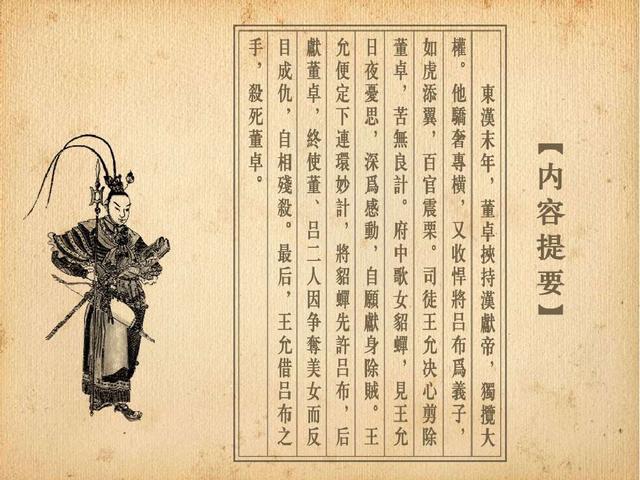 【内容提要】
東漢末年，董卓挾持漢獻帝，獨攬大
權。他驕奢專橫，又收悍將吕布爲義子，
如虎添翼，百官震栗。司徒王允决心剪除
董卓，苦無良計。府中歌女貂蟬，見王允
日夜憂思，深爲感動，自願獻身除賊。王
允便定下連環妙計，將貂蟬先許吕布，后
獻董卓，終使董、吕二人因争奪美女而反
目成仇，自相殘殺。最后，王允借吕布之
手，殺死董卓。